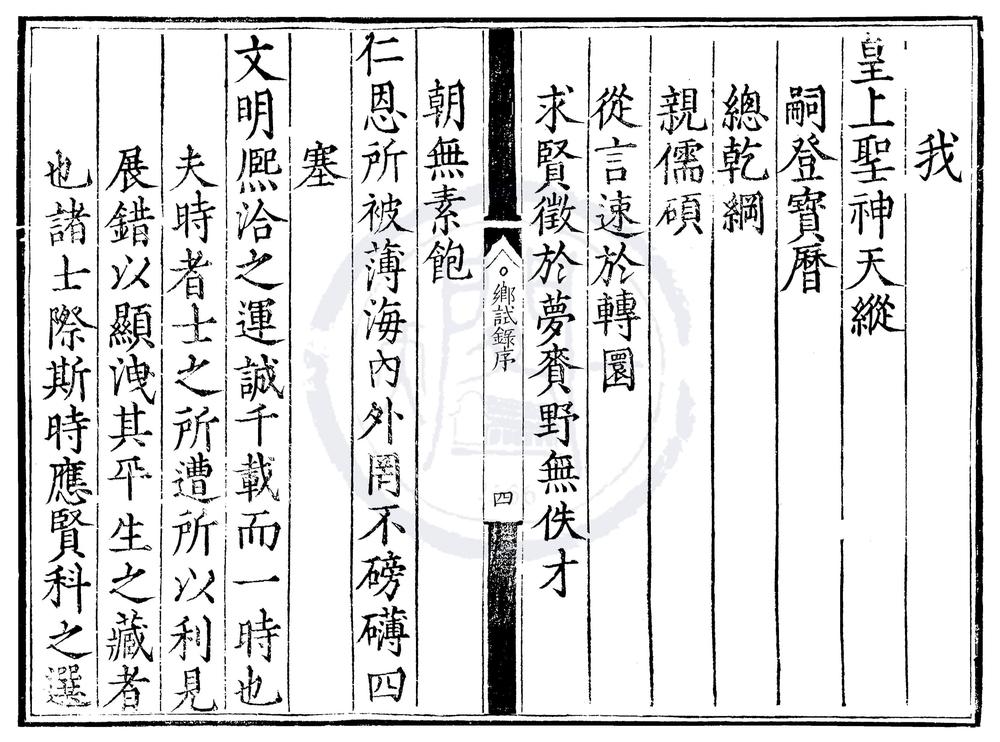 我
皇上聖神天縱
嗣登寶曆
總乾綱
親儒碩
從言速於轉圜
求賢徵於夢賚野無佚才
鄉試錄序
四
朝無素飽
仁恩所被薄海內外罔不磅礴四
塞
文明熈洽之運誠千載而一時也
夫時者士之所遭所以利見
展錯以顯洩其平生之藏者
也諸士際斯時應賢科之選